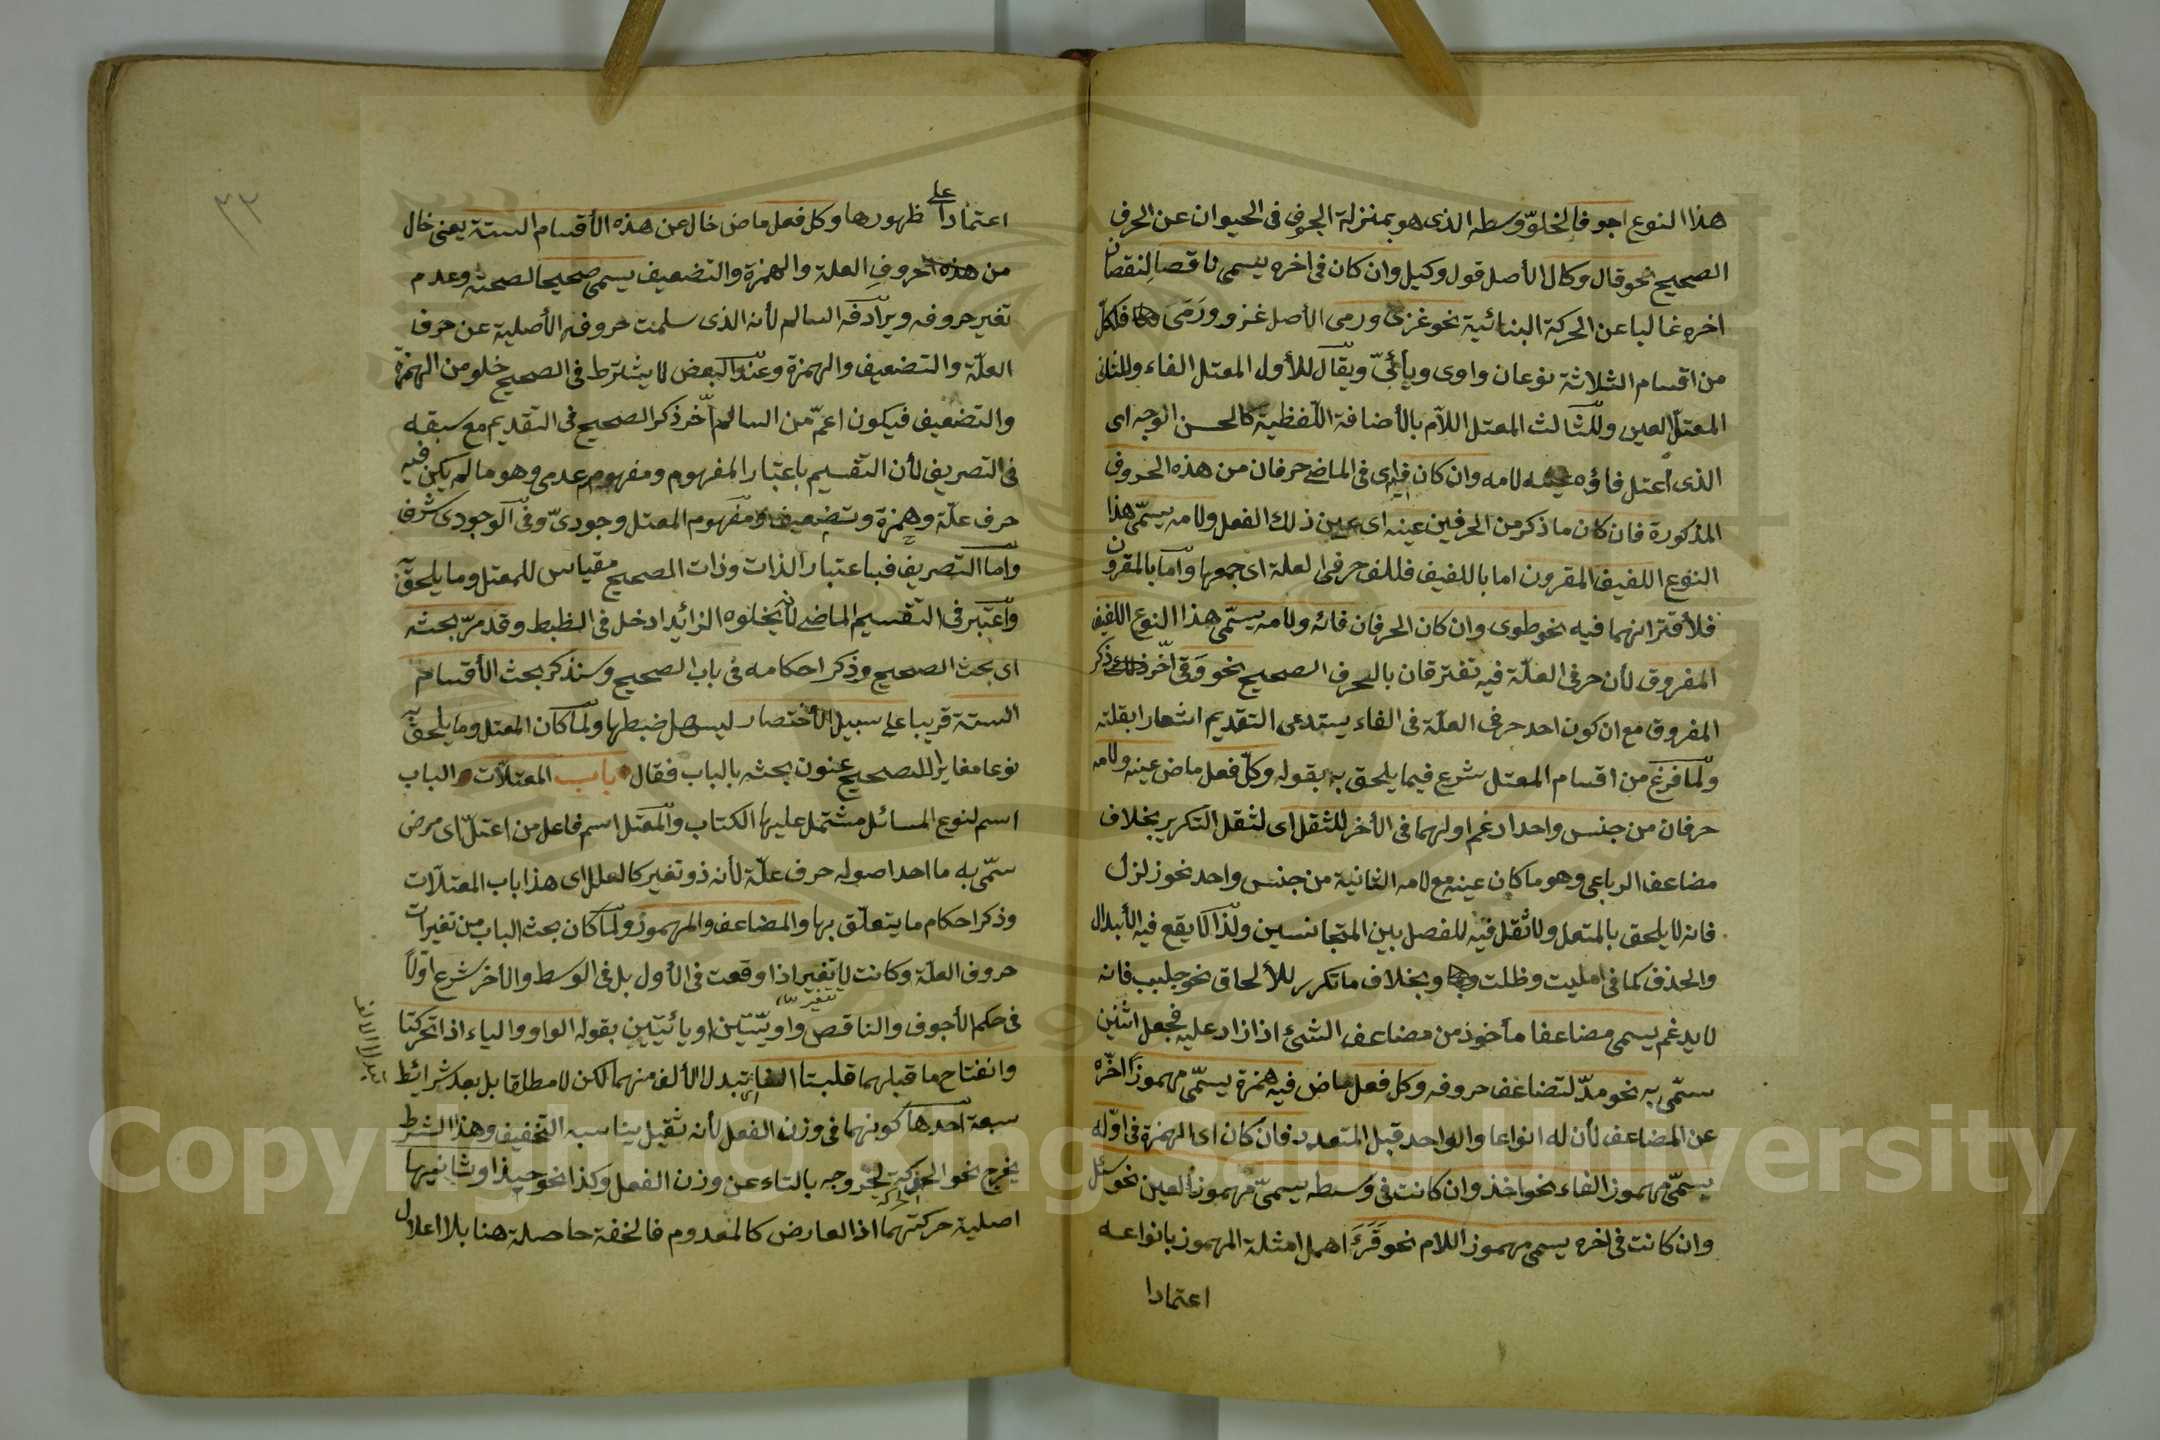 هذا النوع اجوفا لخلوّ وسطه الذى هو بمنزلة الجوف فى الحيوان عن الحرف
الصحيح نحو قال وكال الأصل قول وكيل وان كان فى اخره يسمى ناقصا لنقصان
اخره غالبا عن الحركة البنائية نحو غزى ورمى الأصل غزو ورَمَىَ فكلّ
من اقسام الثلاثة نوعان واوى ويأئىّ ويقال للأول المعتل الفاء وللثانى
المعتلّ العين وللثالث المعتل اللآم بالأضافة اللّفظية كالحسن الوجه اى
الذى اعتل فاؤه عينه لامه وان كان فيه اى فى الماضى حرفان من هذه الحروف
المذكورة فان كان ما ذكر من الحرفين عينه اى عين ذلك الفعل ولامه يسمّى هذا
النوع اللفيف المقرون اما باللفيف فللف حرفى العلة اى جمعها وامّا بالمقرون
فلأقترانهما فيه نحو طوى وان كان الحرفان فائه ولامه يسمّى هذا النوع اللفيف
المفروق لأن حرفى العلّة فيه تفترقان بالحرف الصحيح نحو وَقى اخّر ذكر
المفروق مع ان كون احد حرفى العلّة فى الفاء يستدعى التقديم اشعارا بقلته
ولمّا فرغ من اقسام المعتل شرع فيما يلحق به بقوله وكلّ فعل ماض عينه ولامه
حرفان من جنس واحد ادغم اولهما فى الأخر للثقل اى لثقل التكرير بخلاف
مضاعف الرباعى وهو ما كان عينه مع لامه الثانية من جنس واحد نحو زلزل
فانه لا يلحق بالمتعل ولا ثقل فيه للفصل بين المتجانسين ولذا لا يقع فيه الأبدال
والحذف كما فى امليت وظلت وبخلاف ما تكرر للألحاق نحو جلبب فانه
لا يدغم يسمى مضاعفا مأخوذ من مضاعف الشئ اذا زاد عليه فجعل اثنين
سمّى به نحو مدّ لتضاعف حروفه وكل فعل ماض فيه همزة يسمّى مهموزا اخّره
عن المضاعف لأن له انواعا والواحد قبل المتعدد فان كان اى الهمزة فى اوّله
يسمّى مهموز الفاء نحو اخذ وان كانت فى وسطه يسمىّ مهموز العين نحو سئل
وان كانت فى اخره يسمى مهموز اللام نحو قَرَءَ اهمل امثلة المهموز بانواعه
اعتمادا
اعتمادا على ظهورها وكل فعل ماض خال عن هذه الأقسام الستة يعنى خال
من حروف العلة والهمزة والتضعيف يسمى صحيحا لصحته وعدم
تغير حروفه ويرادفه السالم لأنه الذى سلمت حروفه الأصلية عن حرف
العلّة والتضعيف والهمزة وعند البعض لا يشترط فى الصحيح خلو من الهمزة
والتضعيف فيكون اعمّ من السالم اخّر ذكر الصحيح فى التقديم مع سبقه
فى التصريف لأن التقسيم باعتبار المفهوم ومفهومه عدمى وهو ما لم يكن فيه
حرف علّة وهمزة وتضعيف ومفهوم المعتل وجودىّ وفى الوجودى شرف
وامّا التصريف فباعتبار الذات وذات الصحيح مقياس للمعتل وما يلحق به
واعتبر فى التقسيم الماضى لأن يخلوه الزائد ادخل فى الظبط وقد مرّ بحثه
اى بحث الصحيح وذكر احكامه فى باب الصحيح وسنذكر بحث الأقسام
الستة قريبا على سبيل الأختصار ليسهل ضبطها ولمّا كان المعتل وما يلحق به
نوعا مغايرا للصحيح عنون بحثه بالباب فقال باب المعتلّات والباب
اسم لنوع المسائل مشتمل عليها الكتاب والمعتل اسم فاعل من اعتلّ اى مرض
سمّى به ما احد اصوله حرف علّة لأنه ذو تغير كالعلل اى هذا باب المعتلّات
وذكر احكام ما يتعلّق بها والمضاعف والمهموز ولمّا كان بحث الباب من تغيرات
حروف العلّة وكانت لا تغير اذا وقعت فى الأول بل فى الوسط والأخر شرع اوّلا
فى حكم الأجوف والناقص واويّتين او يائيّتين بقوله الواو والياء اذا تحركتا
وانفتاح ما قبلهما قلبتا الفا تبدلا الألف منهما لكن لا مطلقا بل بعد شرائط
سبعة احدها كونهما فى وزن الفعل لأنه ثقيل يناسبه التخفيف وهذا الشرط
يخرج نحو الحوكة لخروجه بالتاء عن وزن الفعل وكذا نحو حيذا وثانيها
اصلية حركتهما اذ العارض كالمعدوم فالخفة حاصلة هنا بلا اعلال
٣٢
Copyright © King Saud University